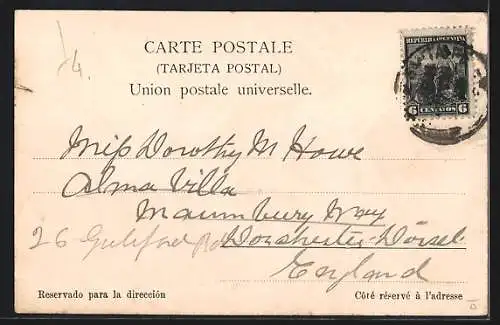 CARTE POSTALE
(TARJETA POSTAL)
Union postale universelle.
REPUBLICA ARGENTINA
6 CENTAVOS 6
4.
Miss Dorothy M Howe
Alma Villa
Maumbury Way
26 Guilford Rd Dorchester Dorset
England
Reservado para la dirección
Côté réservé à l'adresse